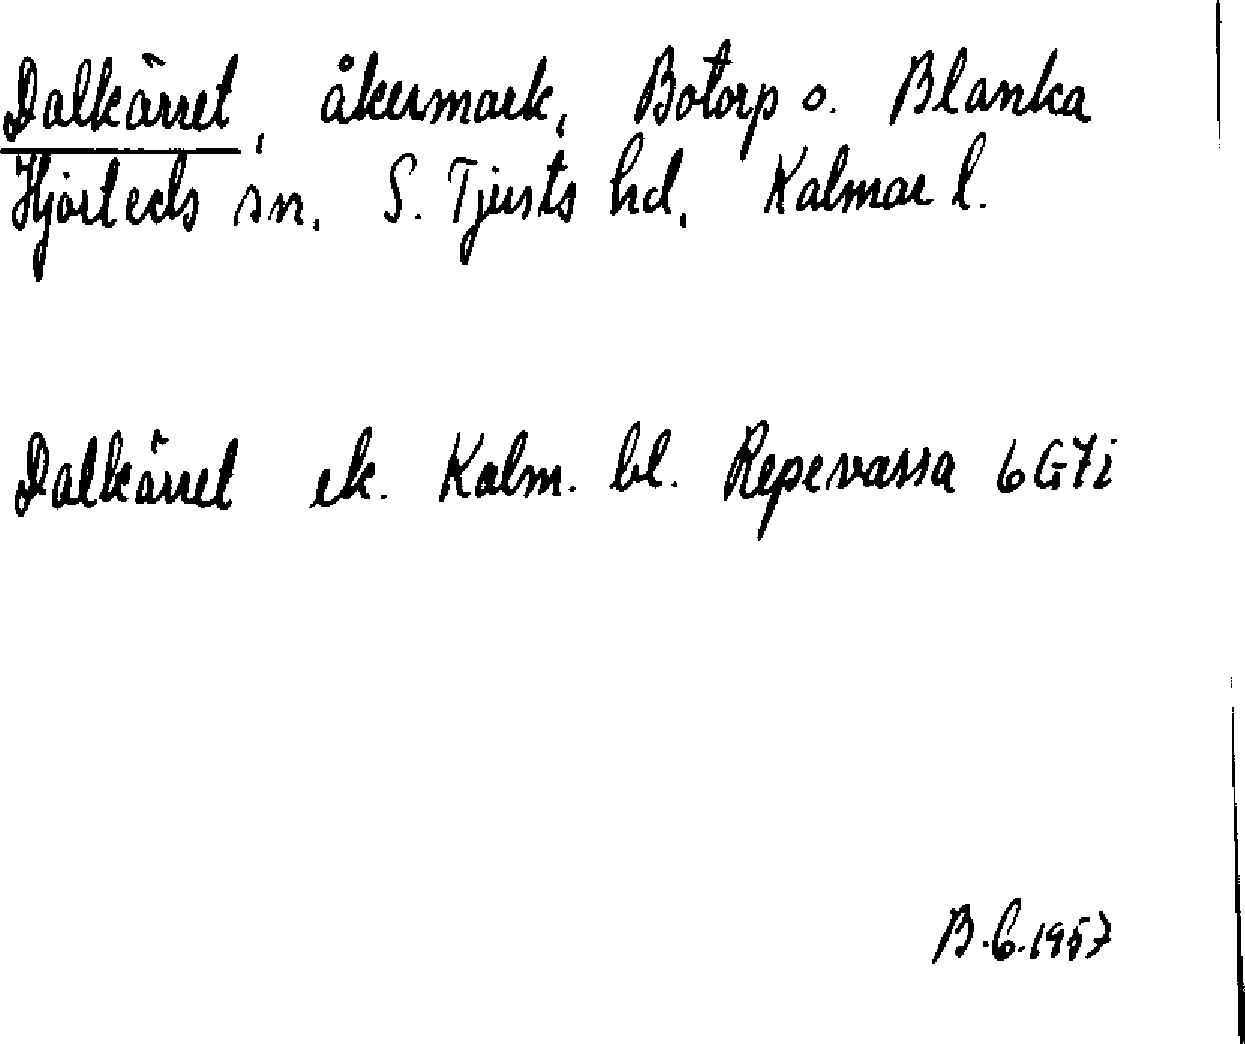 Dalkärret, åkermark, Botorp o. Blanka
Hjorteds sn. S. Tjusts hd. Kalmar l.
Dalkärret ek. Kalm. bl. Repevassa 6G7i
B.C. 1957